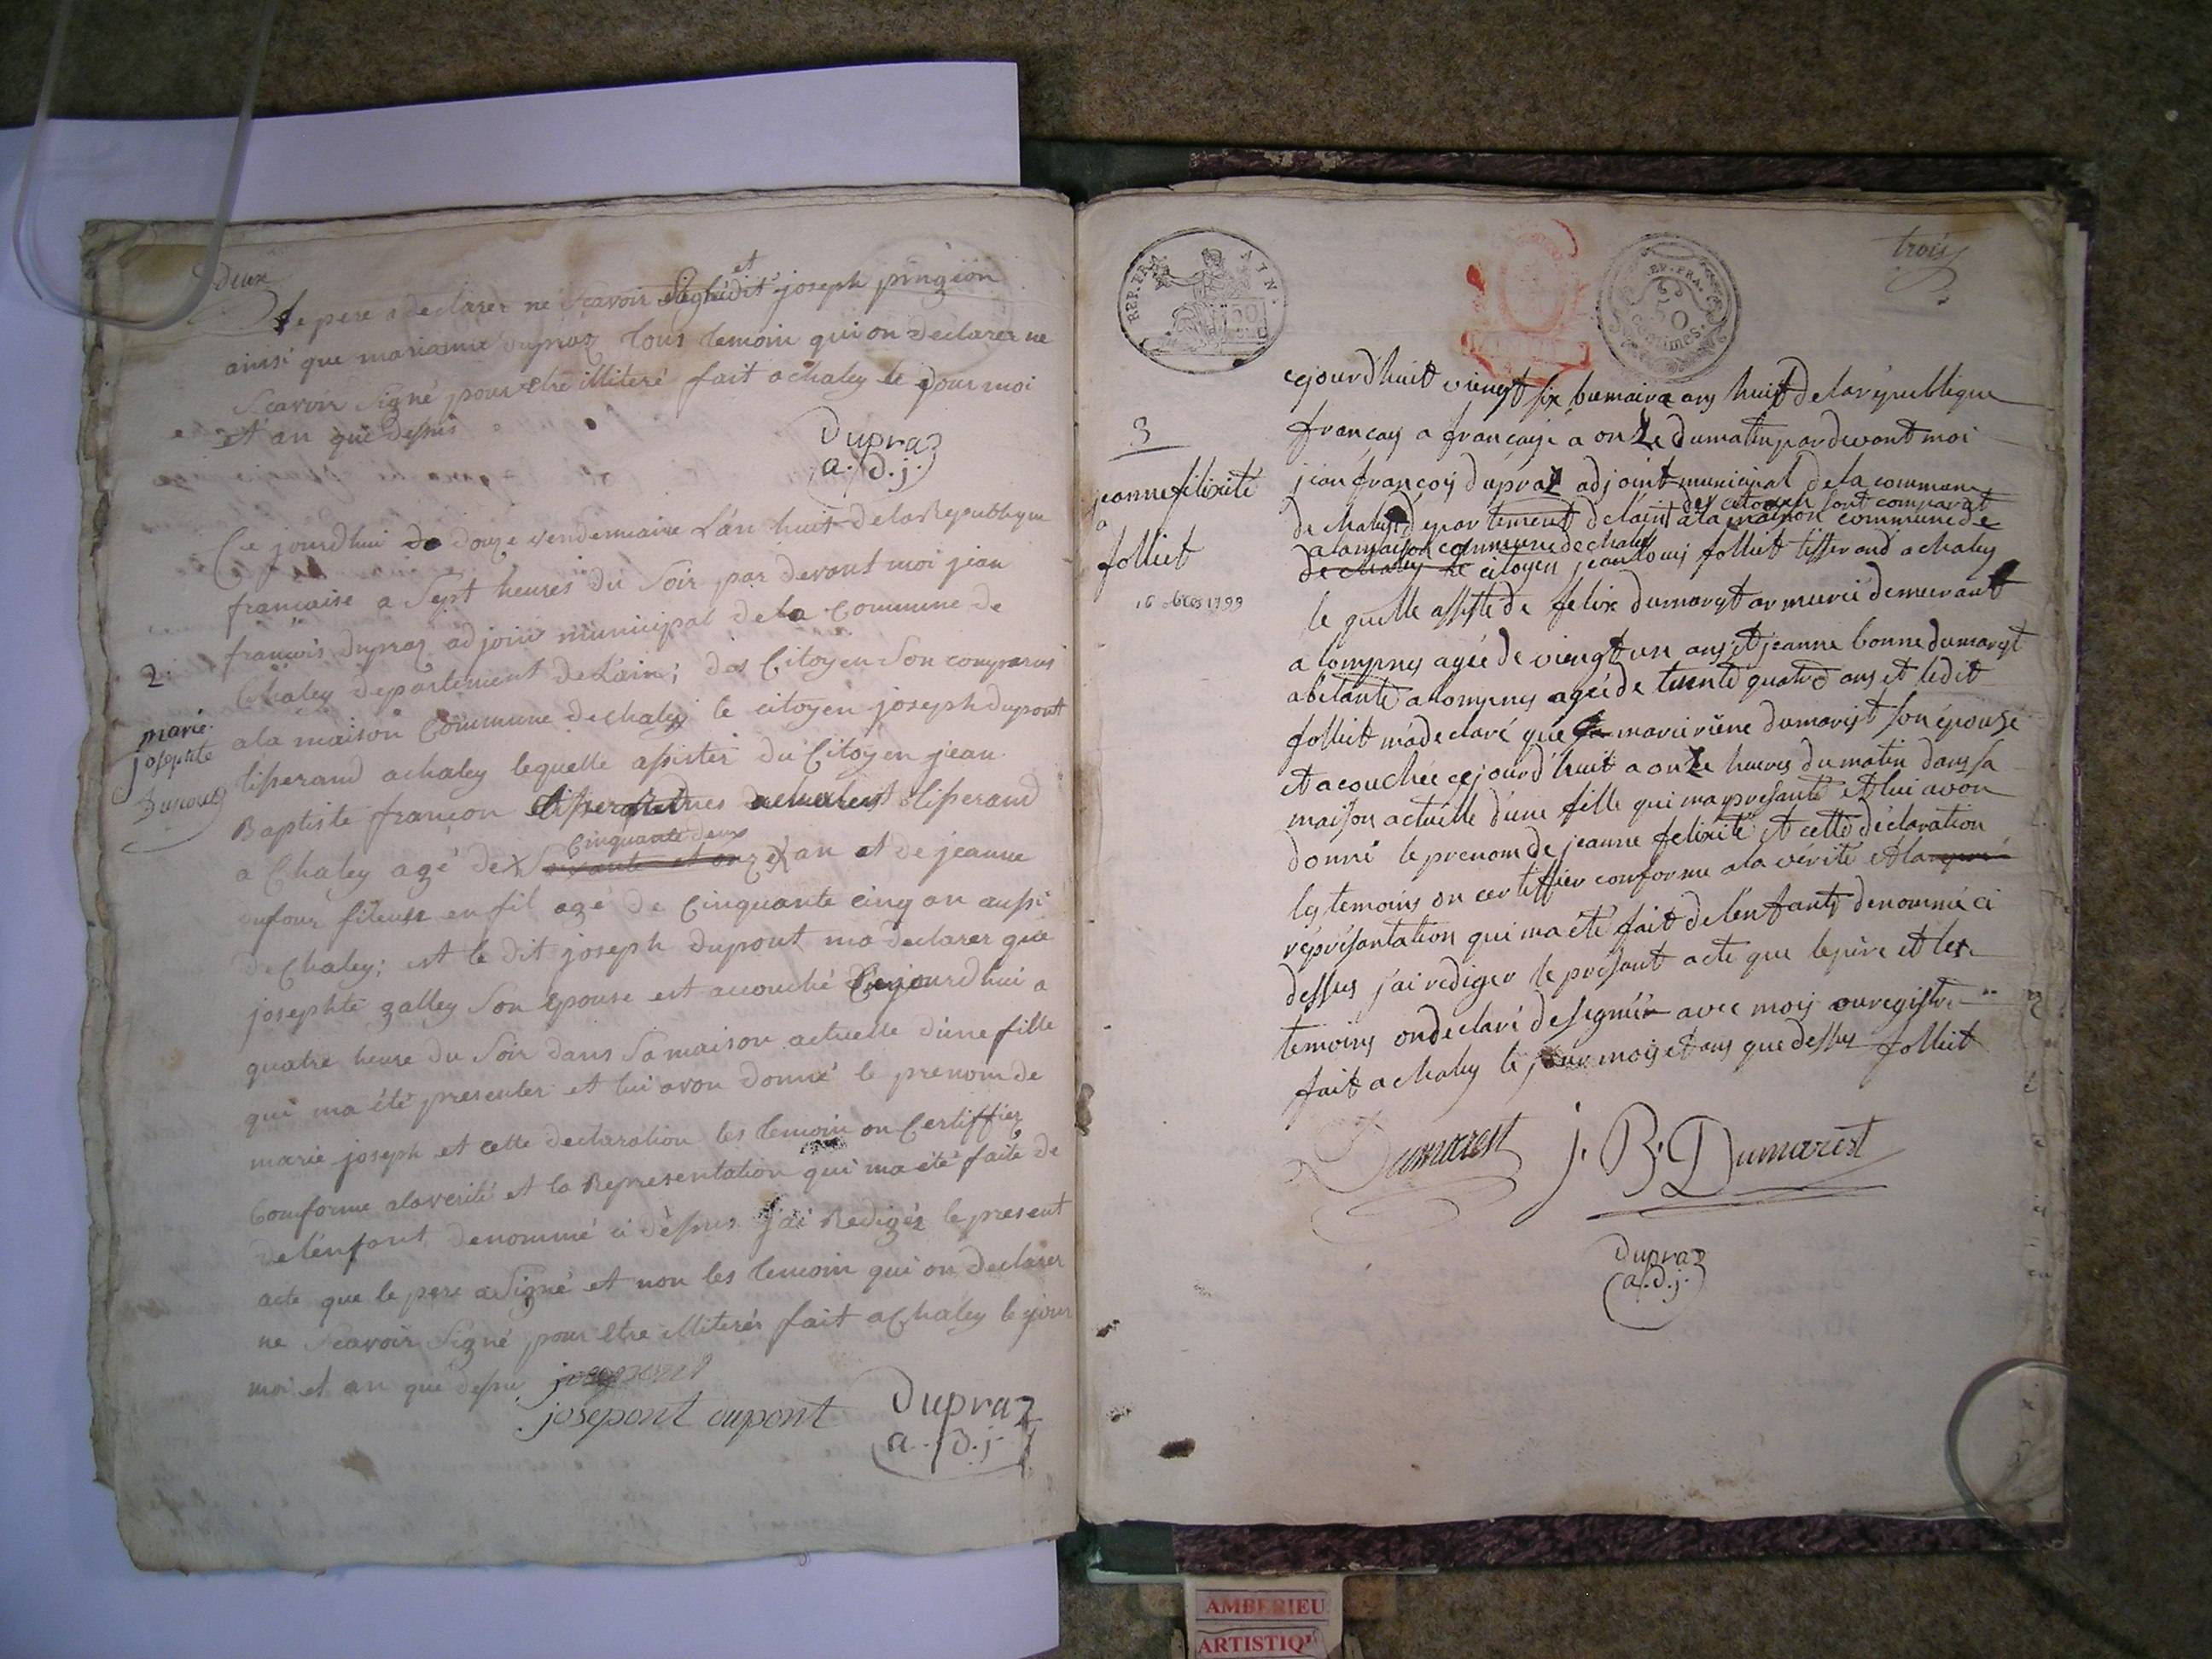 deux
le pere a declarer ne scavoir signé et dit joseph pingeon
ainsi que marianne dupraz tous temoin qui on declarer ne
scavoir signé pour etre illiteré fait a chaley le jour moi
et an que dessus
dupraz
a.d.j.
Ce jourdhui douze vendemiaire L'an huit de la Republique
francaise a sept heures du soir par devant moi jean
francois dupraz adjoint municipal de la Commune de
Chaley departement de Lain; des Citoyen son comparus
2
a la maison Commune de chaley le citoyen joseph dupont
marie
josephte
Dupont
tisserand a chaley lequelle assister du Citoyen jean
Baptiste françon tisserand
cinquante deux
a Chaley agé de soixante et onze an et de jeanne
dufour fileuse en fil agé de Cinquante cinq an aussi
de Chaley; est le dit joseph dupont ma declarer que
josephte galley son epouse est accouché Cejourdhui a
quatre heure du soir dans sa maison actuelle d'une fille
qui ma été presenter et lui avon donné le prenom de
marie joseph et cette declaration les temoin on Certiffiez
Comforme a la verité et la Representation qui ma été faite de
de l'enfant denommé ci dessus j'ai Redigéz le present
acte que le pere a signé et non les temoin qui on declarer
ne scavoir signé pour etre illiterés fait a Chaley le jour
moi et an que dessu
josepont dupont
Dupraz
a.d.j.
REP. FRA. AIN.
50
REP. FRA.
50
Centimes.
trois
cejourd'huit viengt six bumaire ans huit de la république
3
françay a françaije a onze du matin par devant moi
jeanne félixité
jean françois dupraz adjoint municipal de la commune
a
des citoyen sont comparat
de chaley département de lain a la maison commune de
folliet
a la maison commune de chaley
de chaley le citoyen jean louis folliet tisserand a chaley
16 1799
le quelle assisté de felix dumarest armurié demeurant
a lompnes agée de viengt un ans et jeanne bonne dumarest
abitante a lompnes agée de trente quatre ans et ledit
folliet ma declaré que sa marie rène dumarest son épouse
et acouchée cejourd'huit a onze heures du matin dans sa
maison actuelle d'une fille qui ma présanté et lui avon
donné le prenom de jeanne felixité et cette déclaration
les temoins on certiffier conforme a la vérité et la
répresantation qui ma été fait de l'enfant denommé ci
dessus j'ai rediger le présant acte que le père et les
temoins on declaré de segnier avec mois ou registre
fait a chaley le jour mois et ans que dessus folliet
Dumarest j. B. Dumarest
Dupraz
(a.d.j.)
AMBERIEU
ARTISTIQU